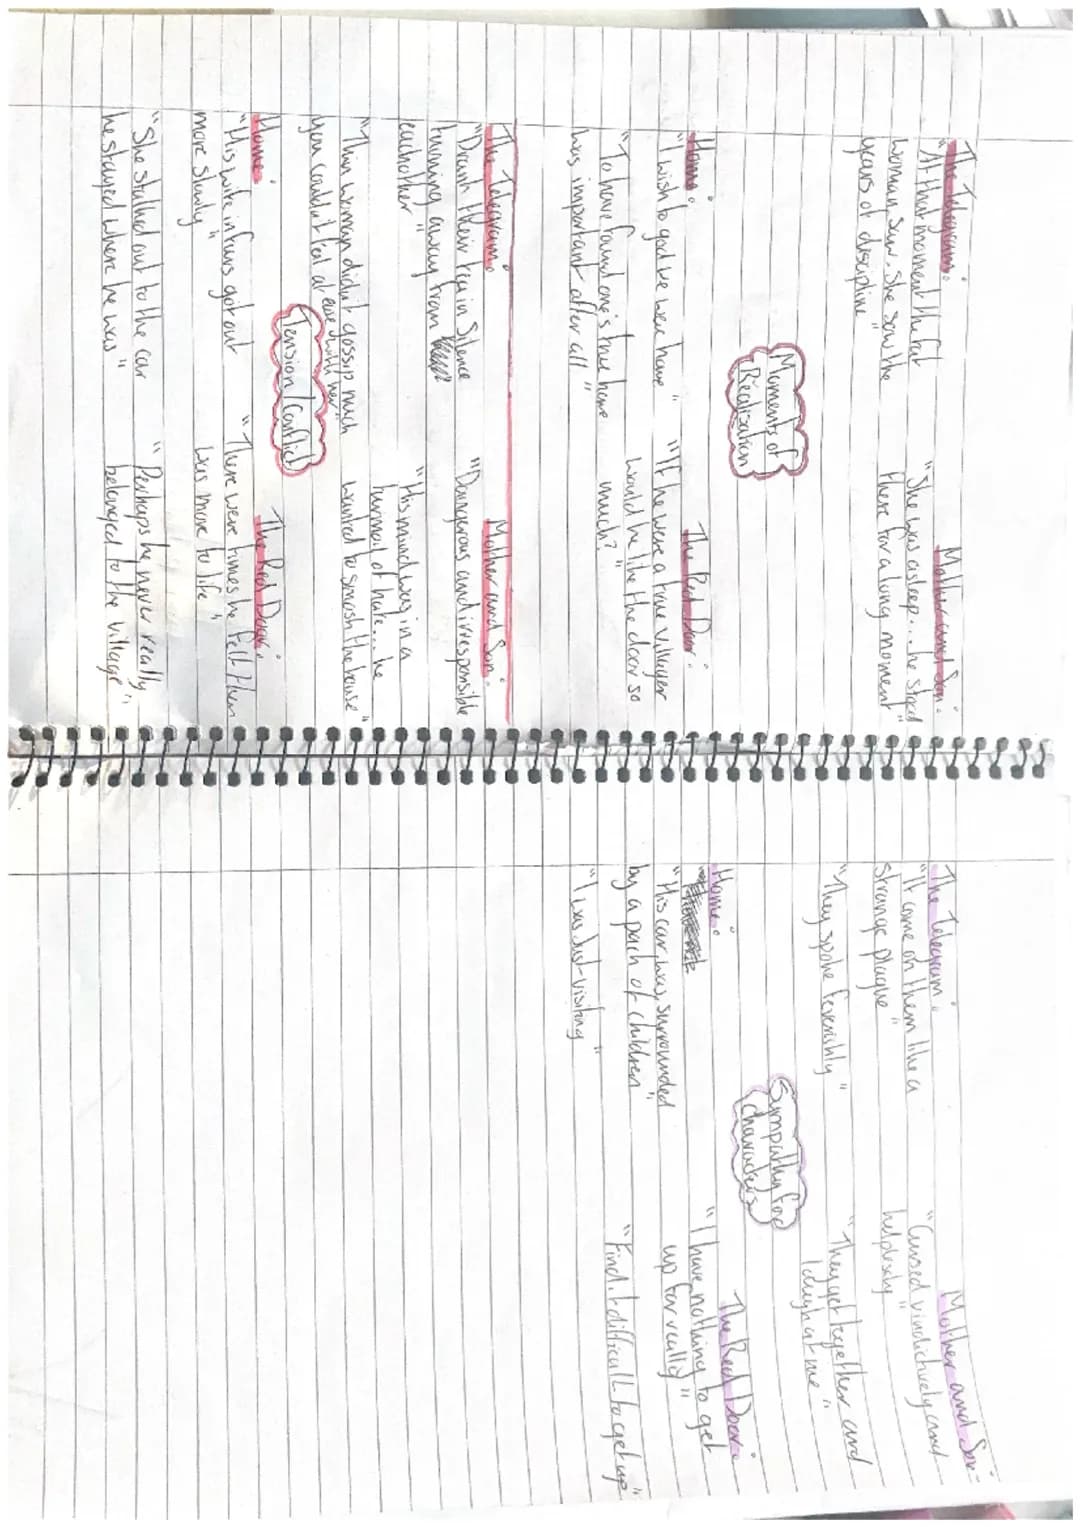 The Telegram:
"At that moment the fat
woman saw. She saw the
years of discipline"
Mother and Son:
"She was asleep... he stood
there for a long moment"
Moments of
Realisation
Home:
"I wish to god we were home"
"To have found one's true home
was important after all"
The Red Door:
"If he were a true villager
would he like the door so
much?"
The Telegram:
"Drank their tea in Silence
turning away from
eachother"
"Thin woman didn't gossip much
you couldn't feel at ease with her"
Mother and Son:
"Dangerous and irresponsible
"His mind was in a
turmoil of hate... he
wanted to smash the house"
Tension/Conflict
Home:
"His wife in furs got out
more slowly"
"She stalked out to the car
he stayed where he was"
The Red Door:
"There were times he felt there
was more to life"
"Perhaps he never really
belonged to the village"
The Telegram:
"It came on them like a
strange plague"
"They spoke feverishly"
Mother and Son:
"Cursed vindictively and
helplessly"
"They get together and
laugh at me"
Sympathy for
characters
Home:
"His car was surrounded
by a pach of children"
"I was Just visiting"
The Red Door:
"I have nothing to get
up for really"
"Find it difficult to get up"